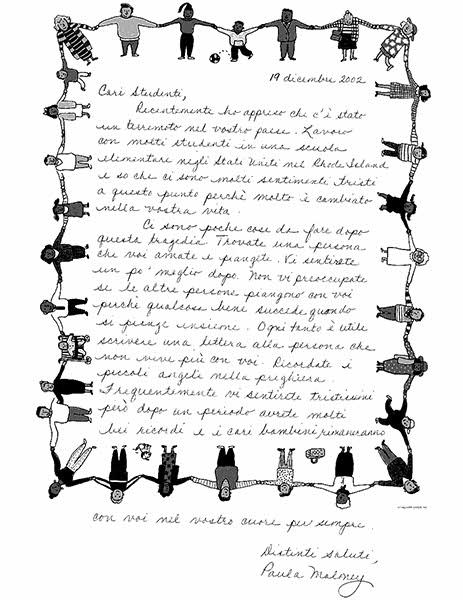 19 dicembre 2002
Cari Studenti,
Recentemente ho appreso che c'è stato
un terremoto nel vostro paese. Lavoro
con molti studenti in una scuola
elementare negli Stati Uniti nel Rhode Island
e so che ci sono molti sentimenti tristi
a questo punto perchè molto è cambiato
nella vostra vita.
Ci sono poche cose da fare dopo
questa tragedia. Trovate una persona
che voi amate e piangete. Vi sentirete
un po' meglio dopo. Non vi preoccupate
se le altre persone piangono con voi
perchè qualcosa bene succede quando
si piange insieme. Ogni tanto è utile
scrivere una lettera alla persona che
non vive più con voi. Ricordate i
piccoli angeli nella preghiera.
Frequentemente vi sentirete tristissimi
però dopo un periodo avrete molti
bei ricordi e i cari bambini rimaneranno
con voi nel vostro cuore per sempre.
Distinti saluti,
Paula Maloney